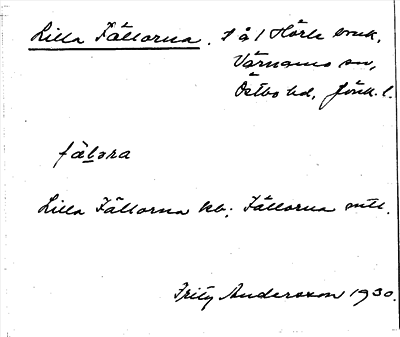 Lilla Fällorna. T å 1 Hörle bruk,
Värnamo sn,
Östbo hd, Jönk. l.
fälora
Lilla Fällorna kb; Fällorna mtl.
Fritz Andersson 1930.